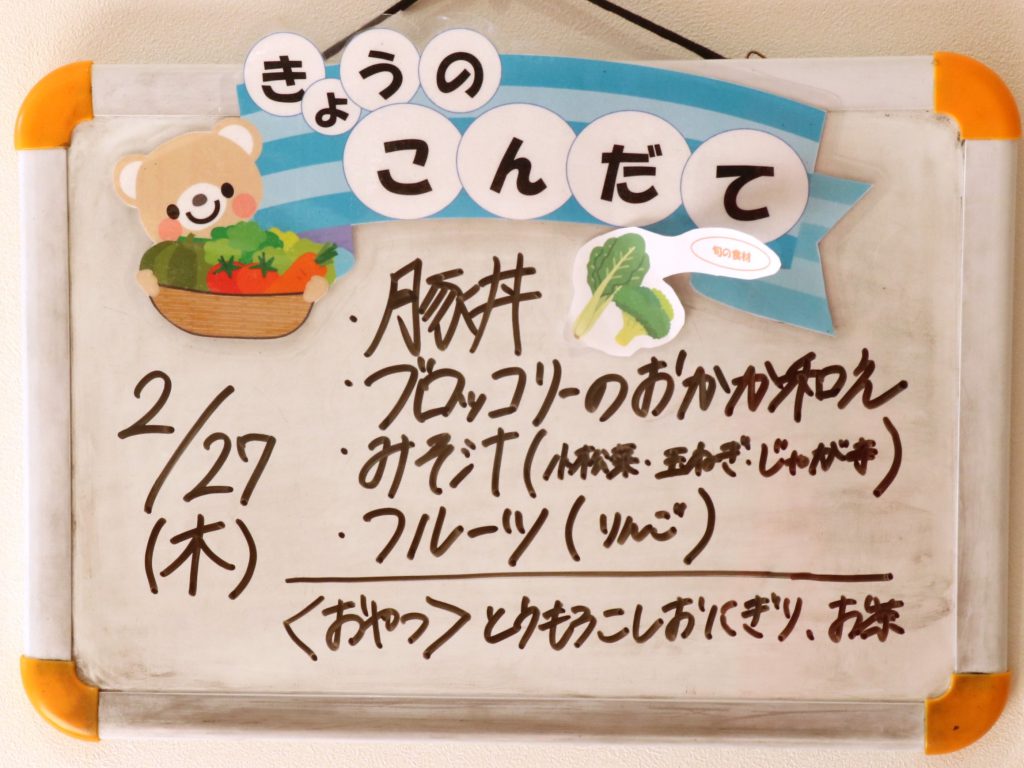 きょうの
こんだて
旬の食材
2/27
(木)
・豚丼
・ブロッコリーのおかか和え
・みそ汁(小松菜・玉ねぎ・じゃが芋)
・フルーツ(りんご)
<おやつ>とうもろこしおにぎり、お茶